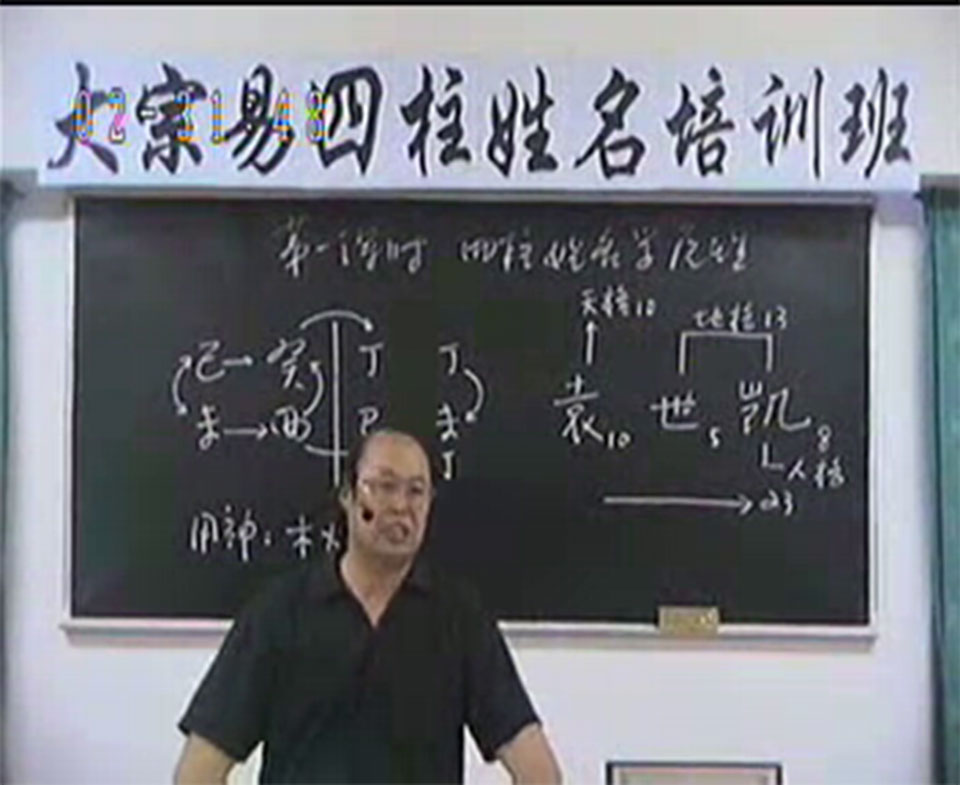 大宗易四柱姓名培训班
02 31 48
第一课时 四柱姓名学原理
天格10
地格13
己→癸 丁 丁
未→酉 巳 未
丁
袁10 世5 凯8
人格
23
用神：木火